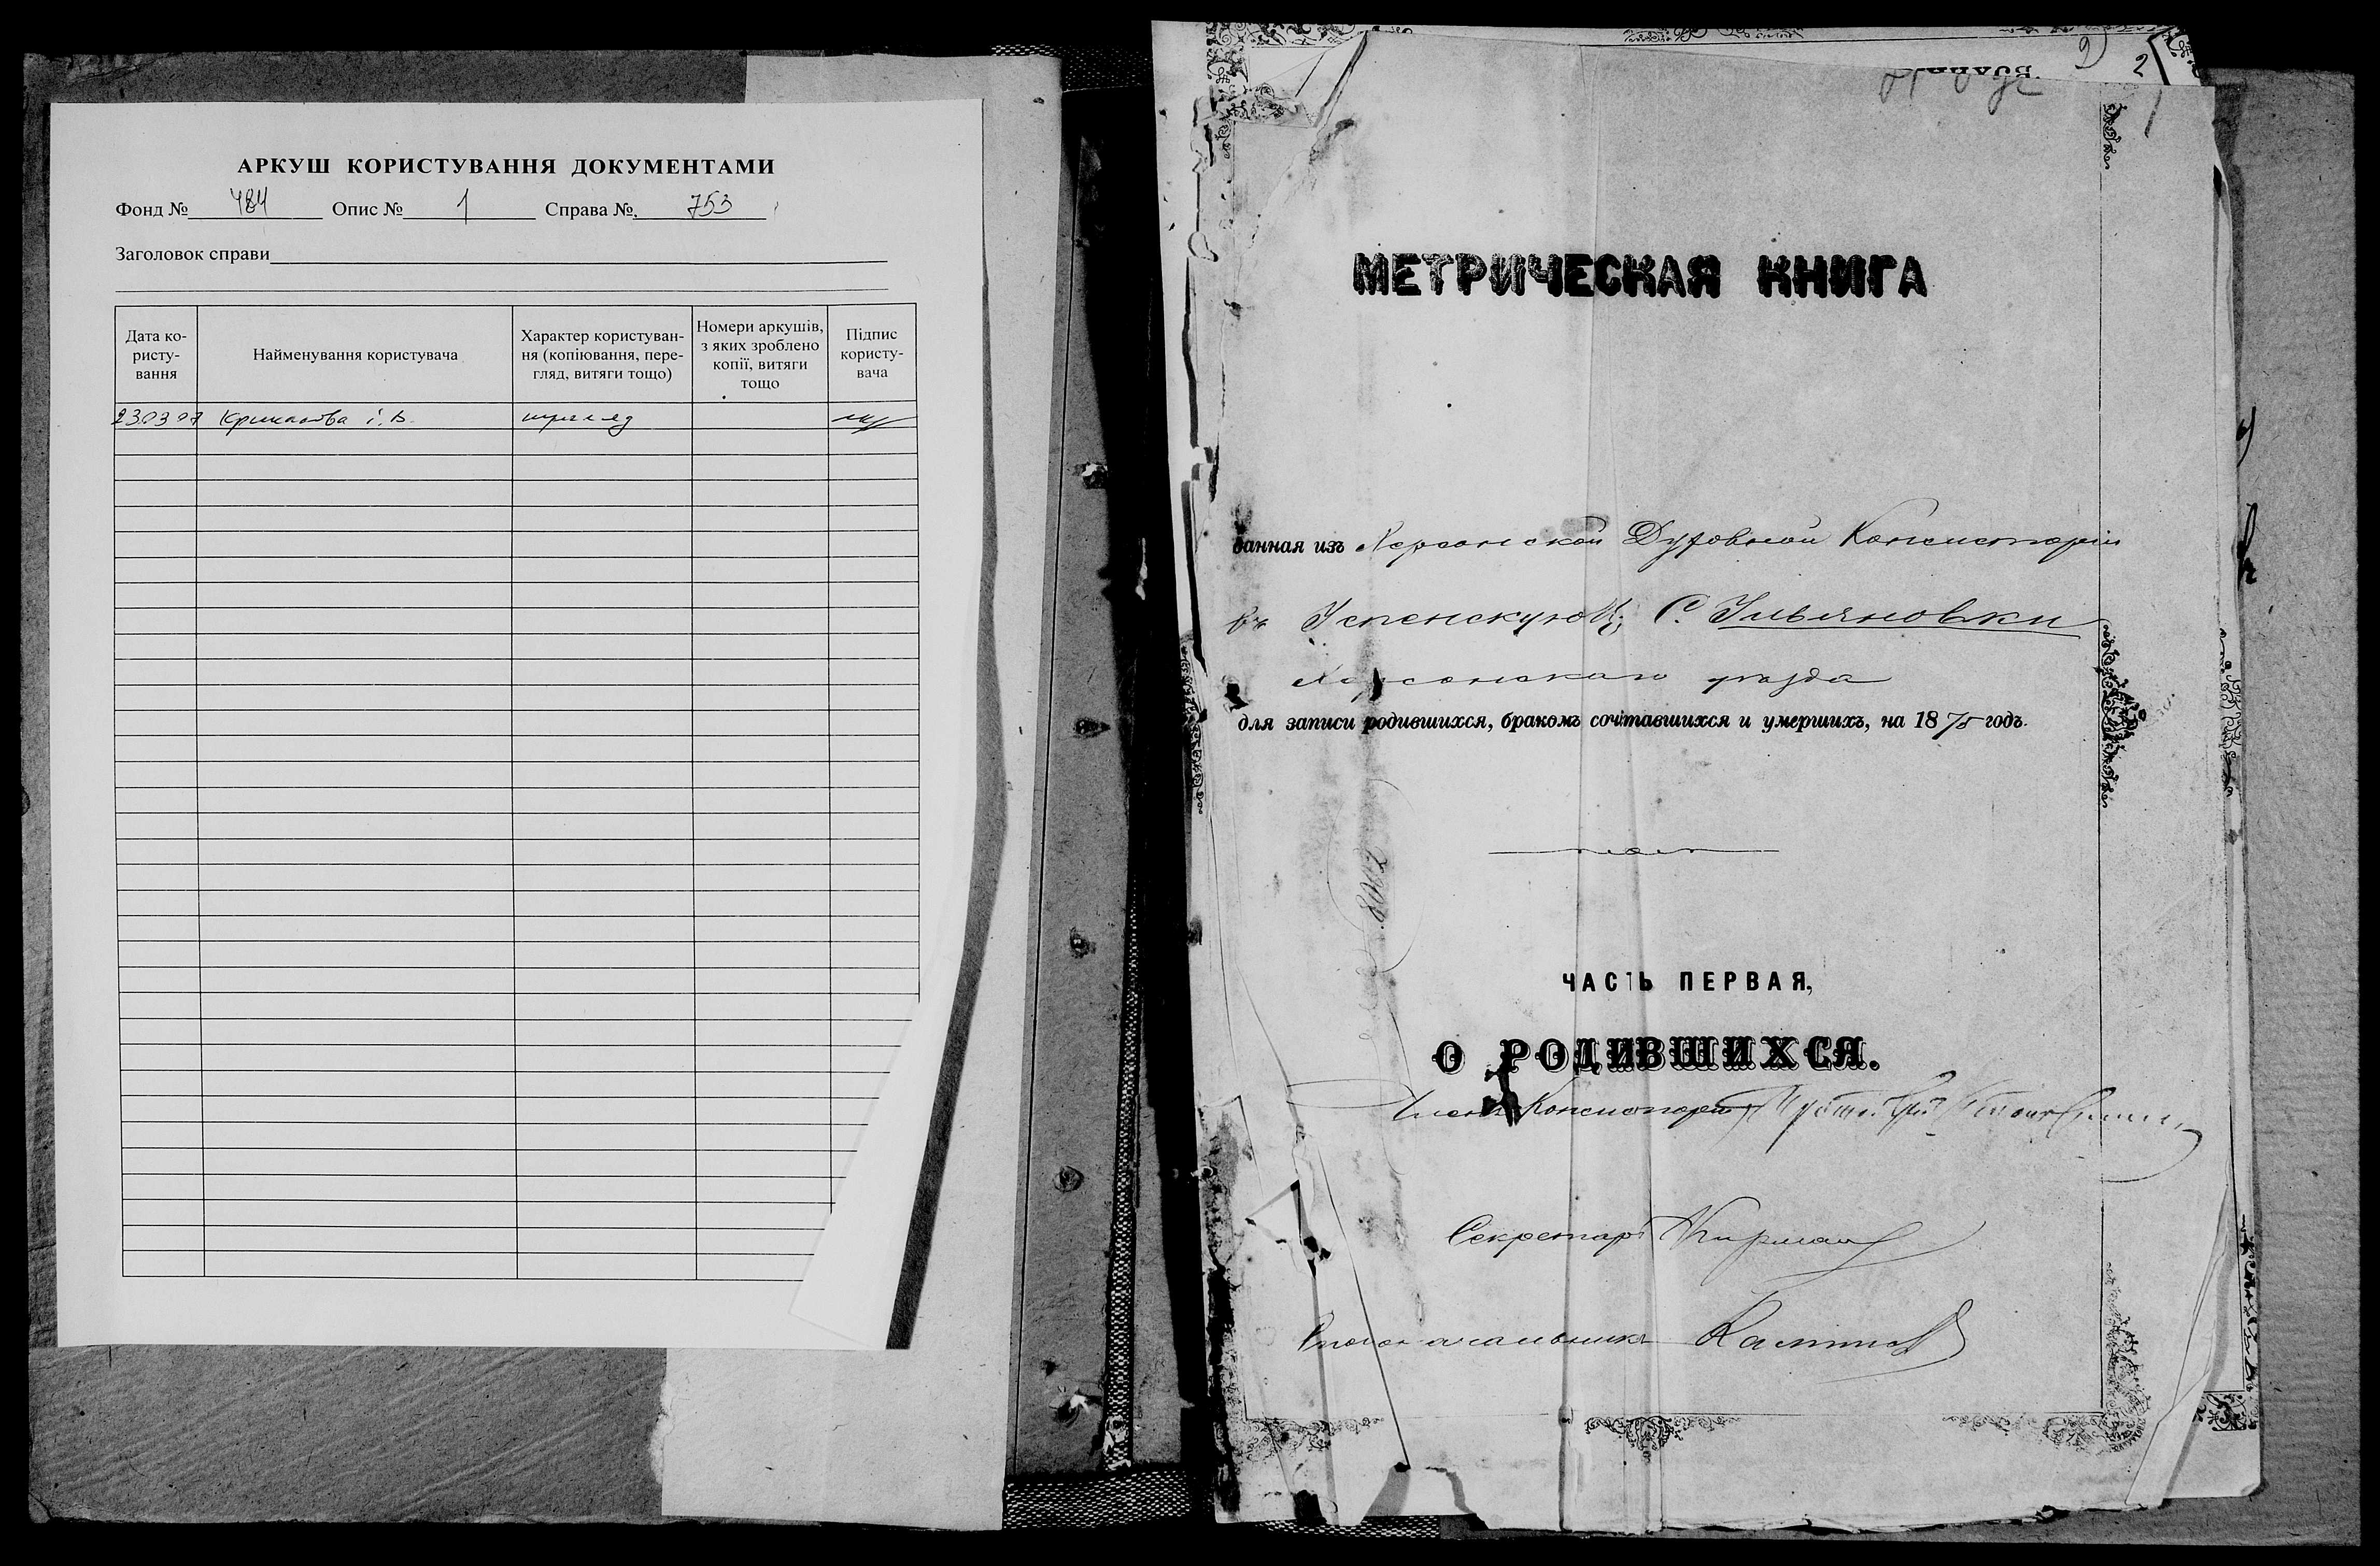 АРКУШ КОРИСТУВАННЯ ДОКУМЕНТАМИ
Фонд № 484 Опис № 1 Справа № 753
Заголовок справи
Дата ко-
ристу-
вання
Найменування користувача
Характер користуван-
ня (копіювання, пере-
гляд, витяги тощо)
Номери аркушів,
з яких зроблено
копії, витяги
тощо
Підпис
користу-
вача
23.03.07 і. В. перегляд
2
1
МЕТРИЧЕСКАЯ КНИГА
данная изъ Херсонской Духовной Консисторіи
въ Успенскую Ц; С. Ульяновки
Херсонскаго уѣзда
для записи родившихся, бракомъ сочетавшихся и умершихъ, на 1875 годъ.
ЧАСТЬ ПЕРВАЯ,
О РОДИВШИХСЯ.
Членъ Консисторіи
Секретарь
Столоначальникъ